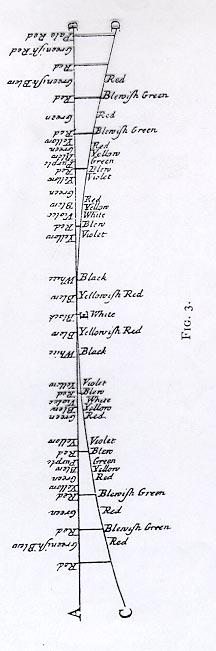 B D
Pale Red
Greenish Red
Red
Greenish Blew Red
Red Blewish Green
Green Red
Red Blewish Green
Yellow
Green Red
Blew Yellow
Purple Green
Red Blew
Yellow Violet
Green
Blew Red
Yellow
Violet White
Red Blew
Yellow Violet
White Black
Blew Yellowish Red
Black E White
Blew Yellowish Red
White Black
Yellow Violet
Red Blew
Violet White
Blew Yellow
Green Red
Yellow Violet
Red Blew
Purple Green
Blew Yellow
Green Red
Yellow
Red Blewish Green
Green Red
Red Blewish Green
Greenish Blew Red
Red
A C
FIG. 3.